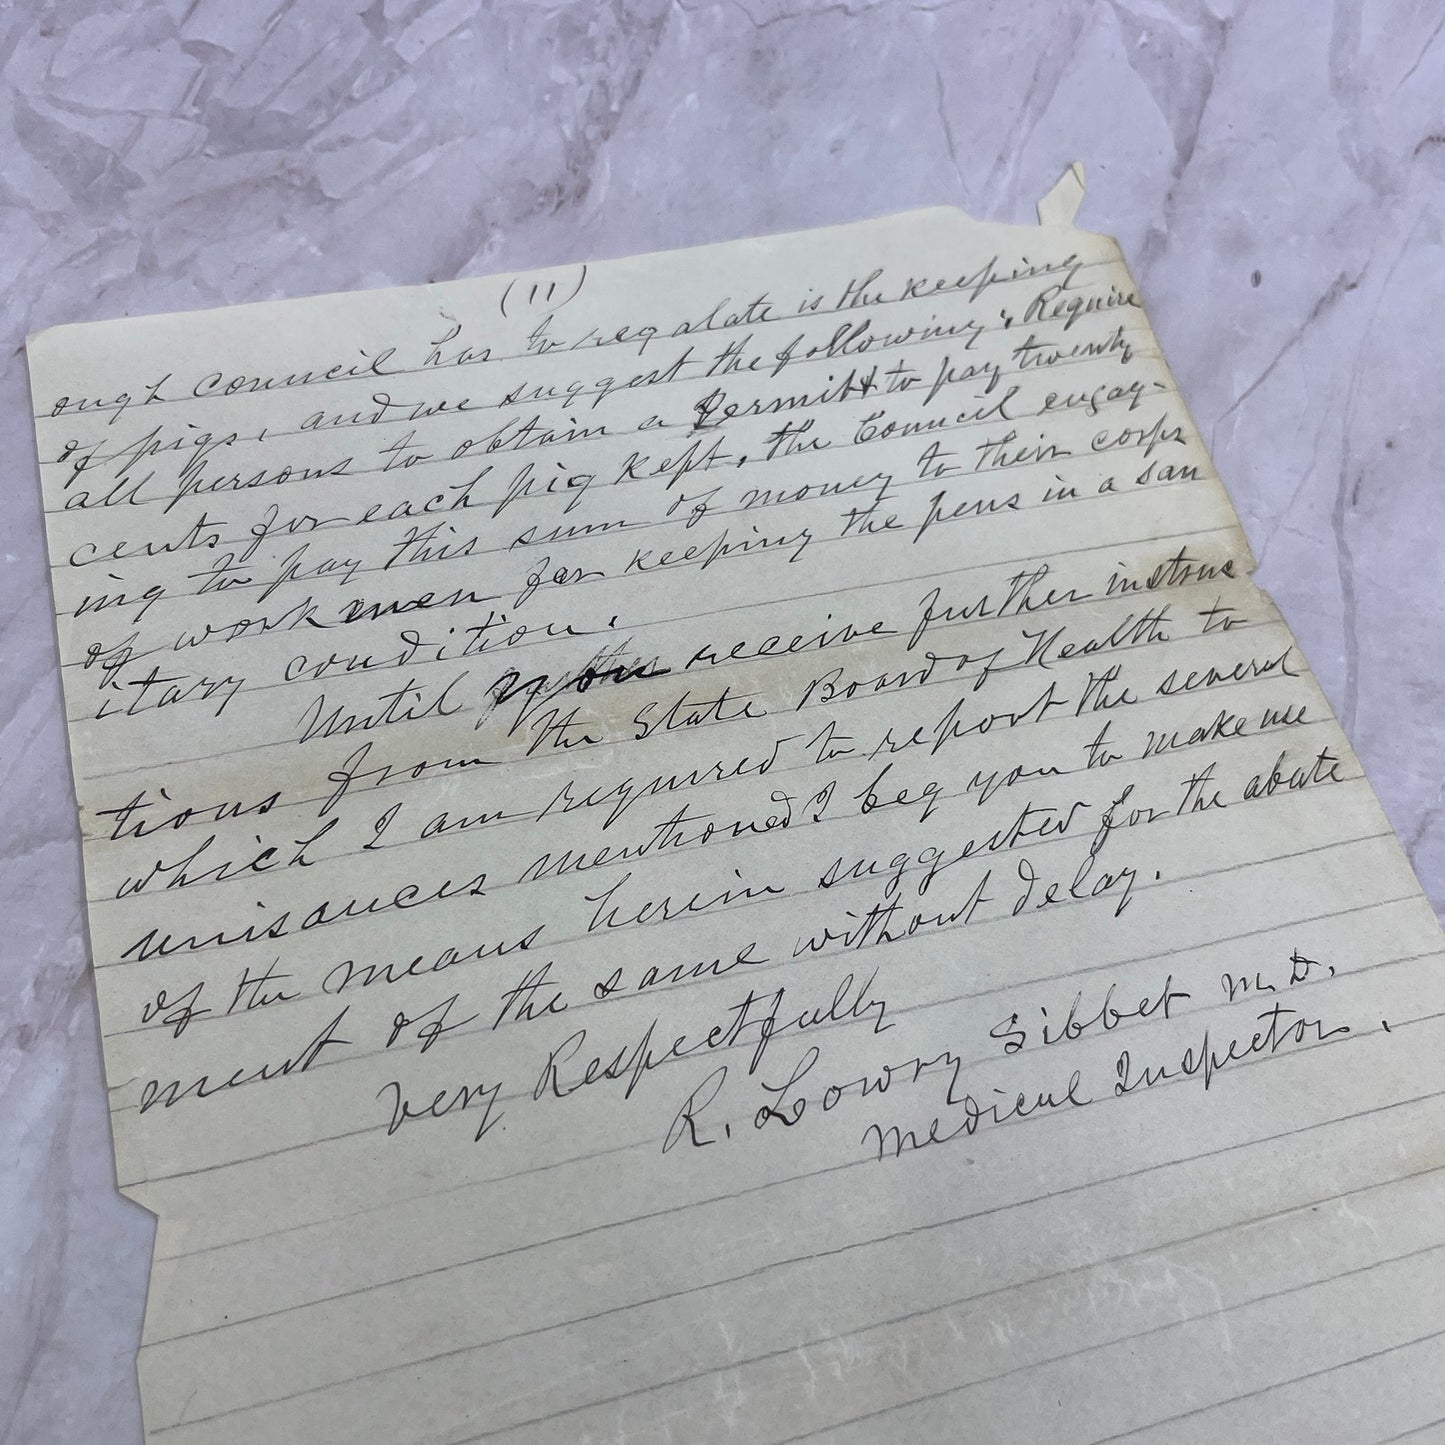 (11)
ough council has to regulate is the keeping
of pigs, and we suggest the following; Require
all persons to obtain a Permitt to pay twenty
cents for each pig kept, the Council engag-
ing to pay this sum of money to their corps
of workmen for keeping the pens in a san
itary condition.
Until you receive further instruc
tions from the State Board of Health to
which I am required to report the several
nuisances mentioned I beg you to make use
of the means herein suggested for the abate
ment of the same without delay.
Very Respectfully
R. Lowry Sibbet M.D.
Medical Inspector.